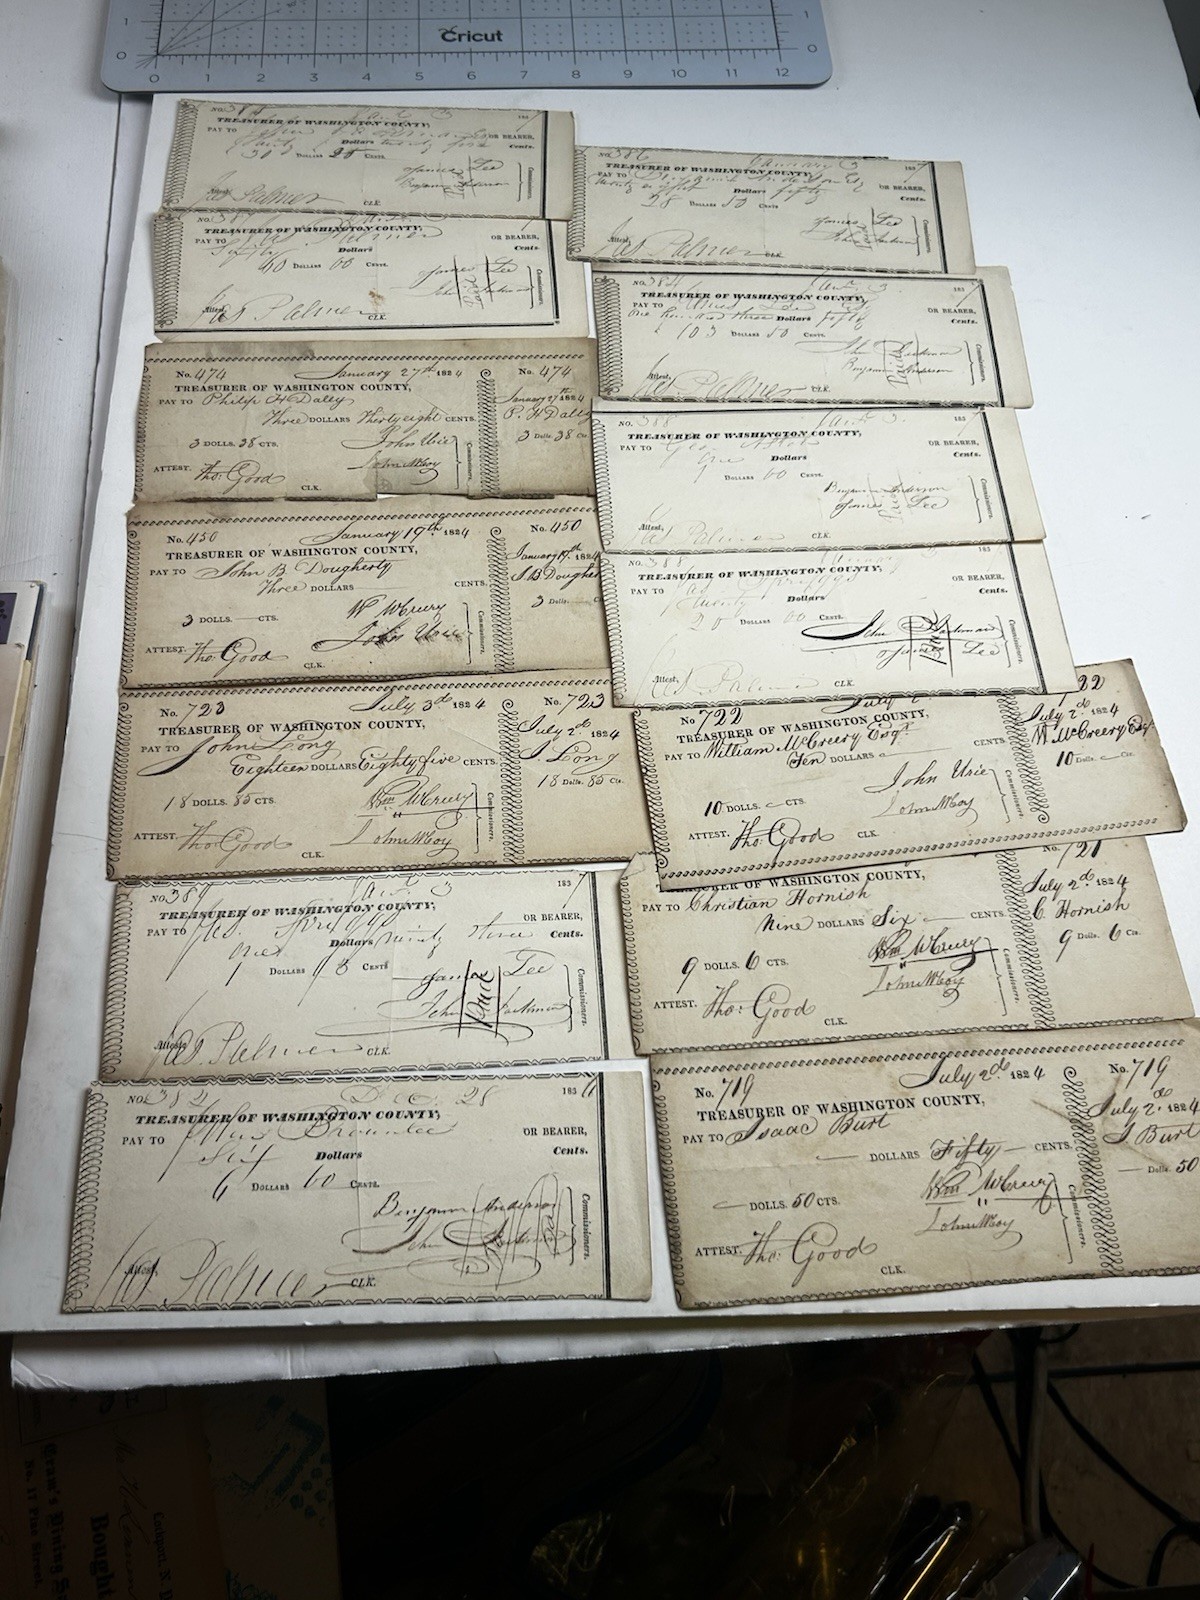 Cricut
0 1 2 3 4 5 6 7 8 9 10 11 12
TREASURER OF WASHINGTON COUNTY,
PAY TO
OR BEARER,
Dollars
Cents.
30 DOLLARS 25 CENTS.
James Lee
Benjamin Anderson
Jas Palmer CLK.
TREASURER OF WASHINGTON COUNTY,
PAY TO Jas Palmer OR BEARER,
Dollars Cents.
DOLLARS 00 CENTS.
James Lee
John Jackman
Commissioners.
Attest, Jas Palmer CLK.
No. 474 January 27th 1824
TREASURER OF WASHINGTON COUNTY,
PAY TO Philip H Dally
Three DOLLARS Thirty eight CENTS.
3 DOLLS. 38 CTS. John Urie
John McCoy
Commissioners.
ATTEST. Tho: Good CLK.
No. 474
January 27th 1824
P. H Dally
3 Dolls 38 Cts
No. 450 January 19th 1824
TREASURER OF WASHINGTON COUNTY,
PAY TO John B Dougherty
Three DOLLARS CENTS.
3 DOLLS. CTS. Wm McCreery
John Urie
Commissioners.
ATTEST. Tho: Good CLK.
No. 450
January 19th 1824
J B Dougher
3 Dolls.
No. 723 July 3d 1824
TREASURER OF WASHINGTON COUNTY,
PAY TO John Long
Eighteen DOLLARS Eighty five CENTS.
18 DOLLS. 85 CTS. Wm McCreery
John McCoy
Commissioners.
ATTEST. Tho: Good CLK.
No. 723
July 2d 1824
J. Long
18 Dolls. 85 Cts.
No. 389 Jany 3 183
TREASURER OF WASHINGTON COUNTY,
PAY TO OR BEARER,
One Dollars ninety three Cents.
1 DOLLARS 93 CENTS
James Lee
John Jackman
Commissioners.
Attest, Jas Palmer CLK.
No. 382 Dec. 28 1836
TREASURER OF WASHINGTON COUNTY,
PAY TO Brownlee OR BEARER,
Six Dollars Cents.
6 DOLLARS 00 CENTS.
Benjamin Anderson
John Jackman
Commissioners.
Attest, Jas Palmer CLK.
No. 386 January 3 1837
TREASURER OF WASHINGTON COUNTY,
PAY TO Benjamin Anderson Esq OR BEARER,
twenty eight Dollars fifty Cents.
28 DOLLARS 50 CENTS
James Lee
John Jackman
Commissioners.
Attest, Jas Palmer CLK.
No. 384 Jany 3 183
TREASURER OF WASHINGTON COUNTY,
PAY TO James Lee OR BEARER,
One hundred three Dollars fifty Cents.
103 DOLLARS 50 CENTS
John Jackman
Benjamin Anderson
Commissioners.
Attest, Jas. Palmer CLK.
No. 388 Jany 3 1837
TREASURER OF WASHINGTON COUNTY,
PAY TO OR BEARER,
One Dollars Cents.
1 DOLLARS 00 CENTS.
Benjamin Anderson
James Lee
Commissioners.
Attest, Jas Palmer CLK.
No. 388 183
TREASURER OF WASHINGTON COUNTY,
PAY TO Jas Spriggs OR BEARER,
twenty Dollars Cents.
20 DOLLARS 00 CENTS.
John Jackman
James Lee
Commissioners.
Attest, Jas. Palmer CLK.
No. 722 July 2
TREASURER OF WASHINGTON COUNTY,
PAY TO William McCreery Esqr
Ten DOLLARS CENTS
10 DOLLS. CTS. John Urie
John McCoy
Commissioners.
ATTEST. Tho: Good CLK.
22
July 2d 1824
W. McCreery Esqr.
10 Dolls. Cts.
TREASURER OF WASHINGTON COUNTY,
PAY TO Christian Hornish
Nine DOLLARS Six CENTS.
9 DOLLS. 6 CTS. Wm McCreery
John McCoy
Commissioners.
ATTEST. Tho: Good CLK.
No. 721
July 2d 1824
C. Hornish
9 Dolls. 6 Cts.
No. 719 July 2d 1824
TREASURER OF WASHINGTON COUNTY,
PAY TO Isaac Burt
DOLLARS Fifty CENTS.
DOLLS. 50 CTS. Wm McCreery
John McCoy
Commissioners.
ATTEST. Tho: Good CLK.
No. 719
July 2d 1824
I Burt
Dolls 50
No. 17 Pine Street,
Bought
Lockport, N